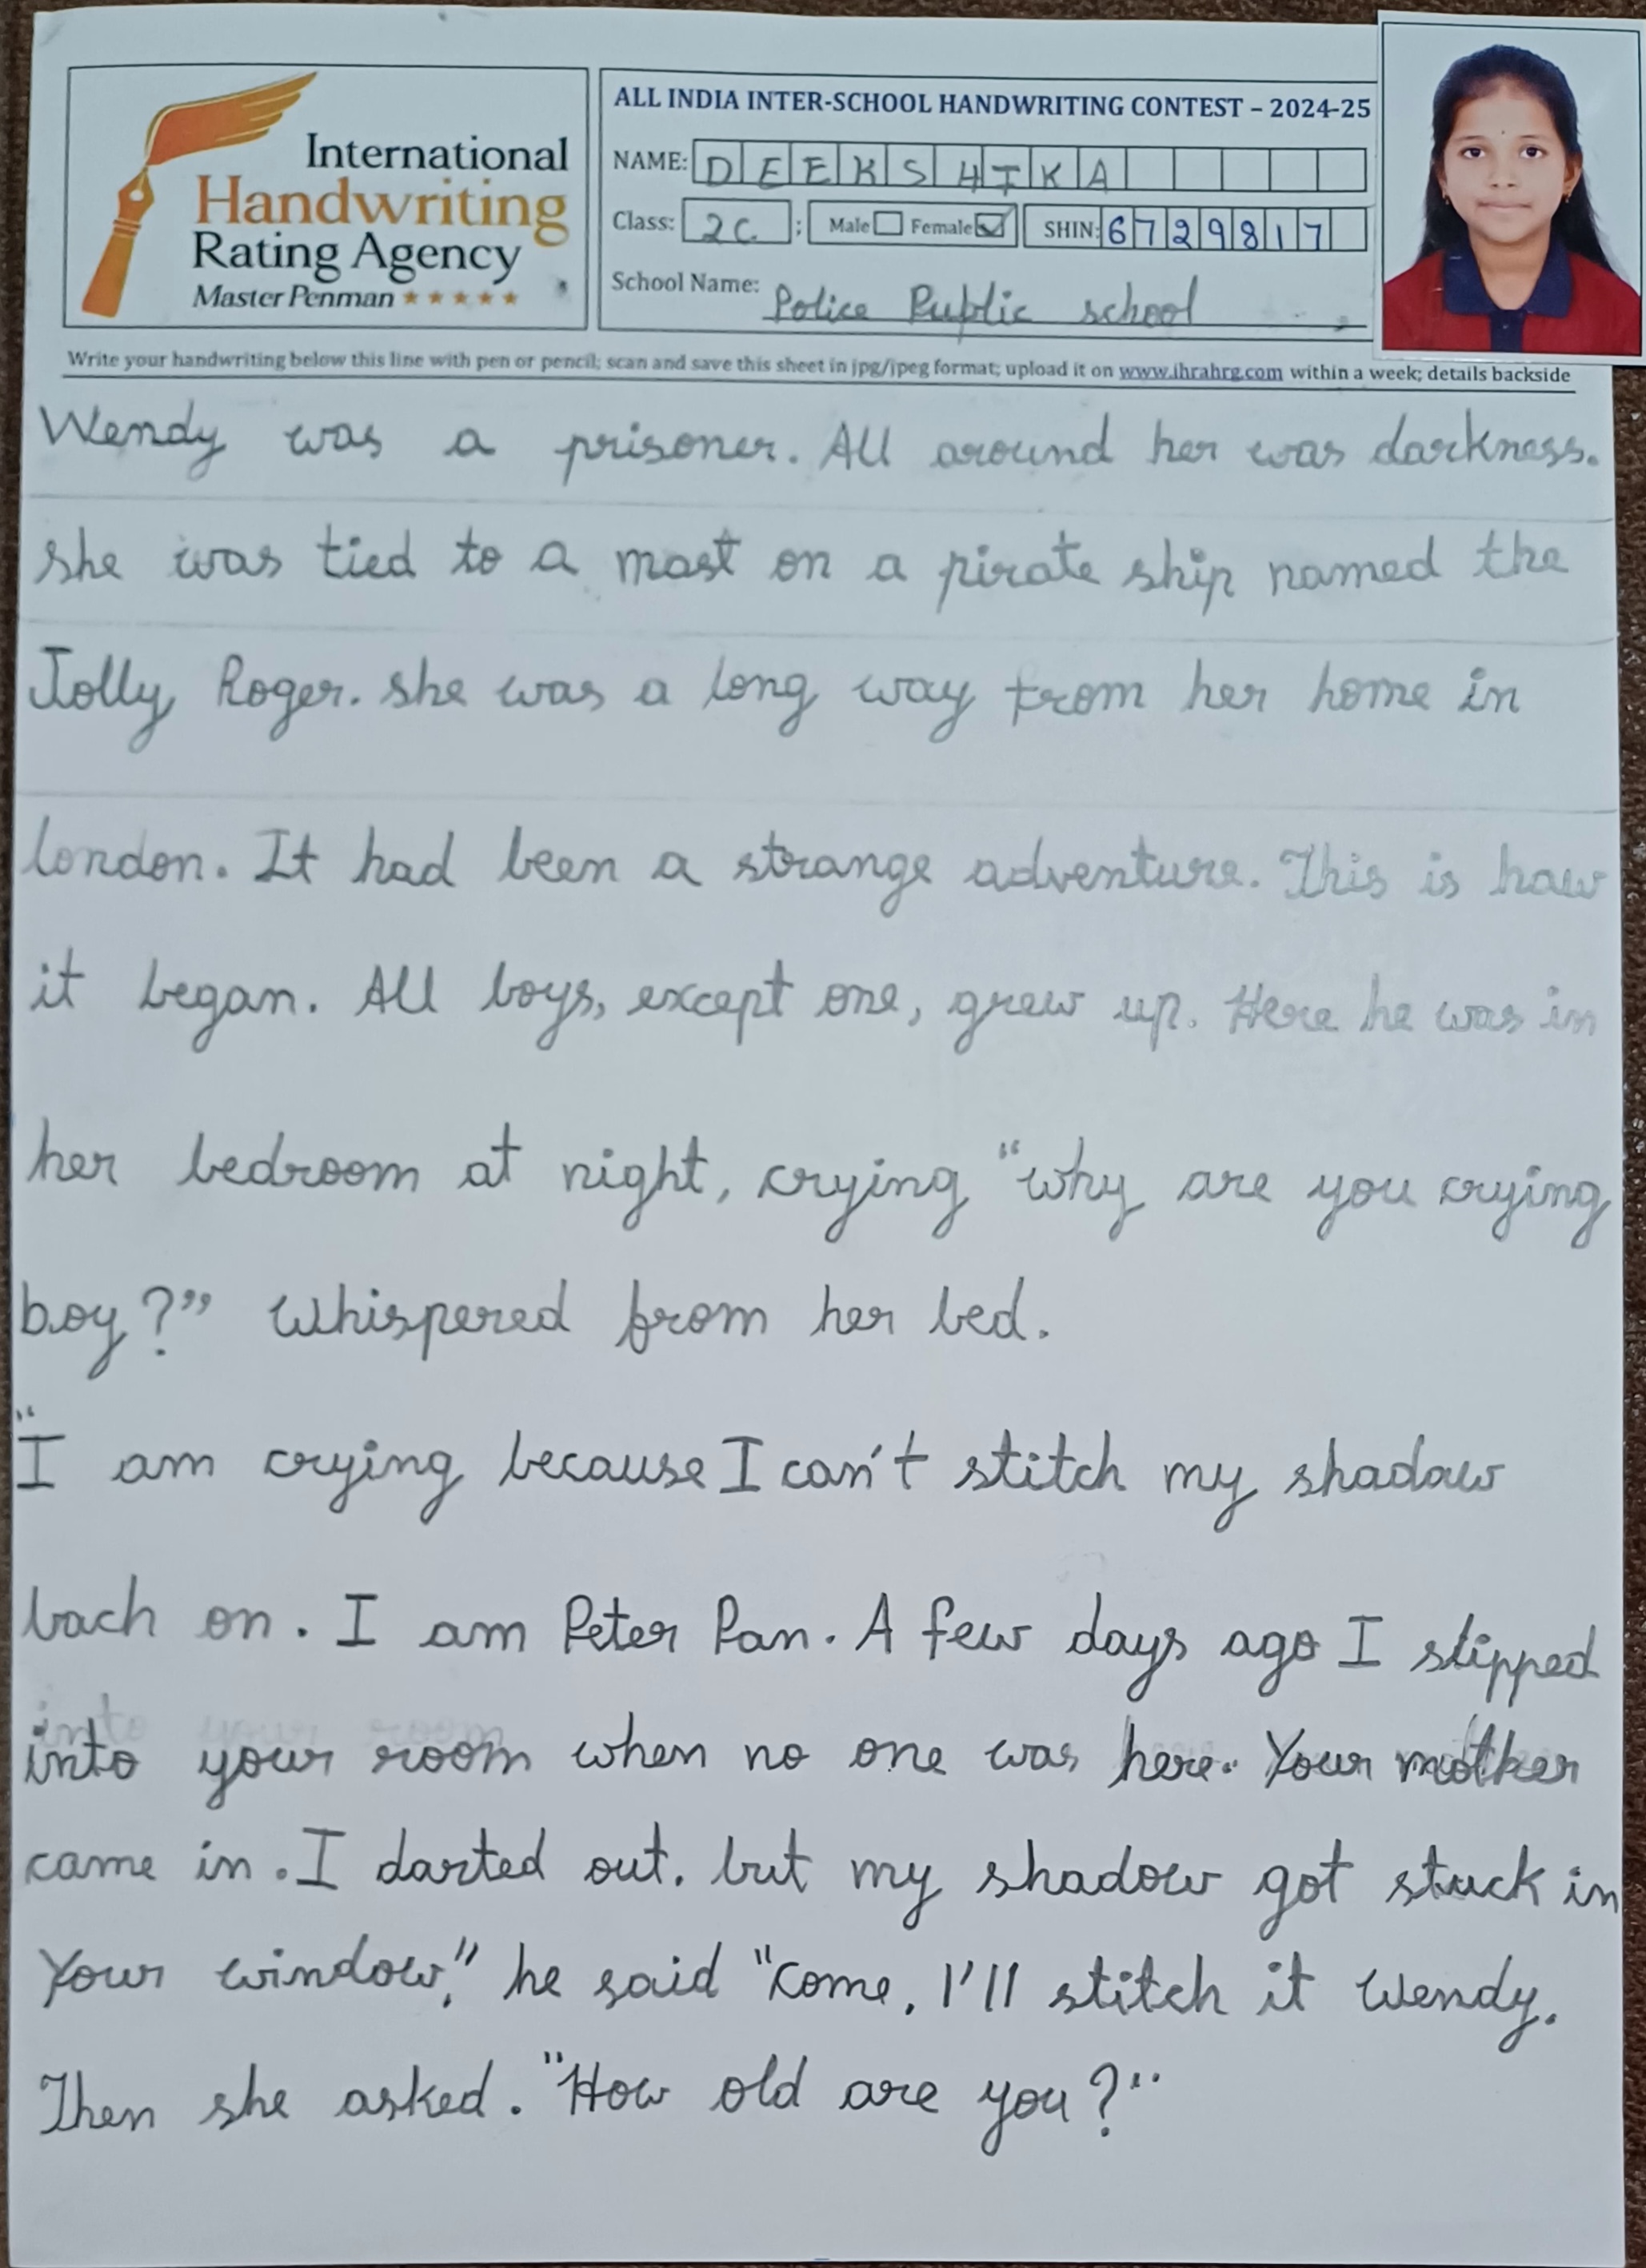 International
Handwriting
Rating Agency
Master Penman
ALL INDIA INTER-SCHOOL HANDWRITING CONTEST – 2024-25
NAME: DEEKSHIKA
Class: 2C ; Male Female SHIN: 6729817
School Name: Police Public school
Write your handwriting below this line with pen or pencil; scan and save this sheet in jpg/jpeg format; upload it on www.ihrahrg.com within a week; details backside
Wendy was a prisoner. All around her was darkness.
she was tied to a mast on a pirate ship named the
Jolly Roger. she was a long way from her home in
london. It had been a strange adventure. This is how
it began. All boys, except one, grew up. Here he was in
her bedroom at night, crying "why are you crying
boy?" Whispered from her bed.
"I am crying because I can't stitch my shadow
bach on. I am Peter Pan. A few days ago I slipped
into your room when no one was here. Your mother
came in. I darted out. but my shadow got stuck in
Your window," he said "come, I'll stitch it Wendy.
Then she asked. "How old are you?"